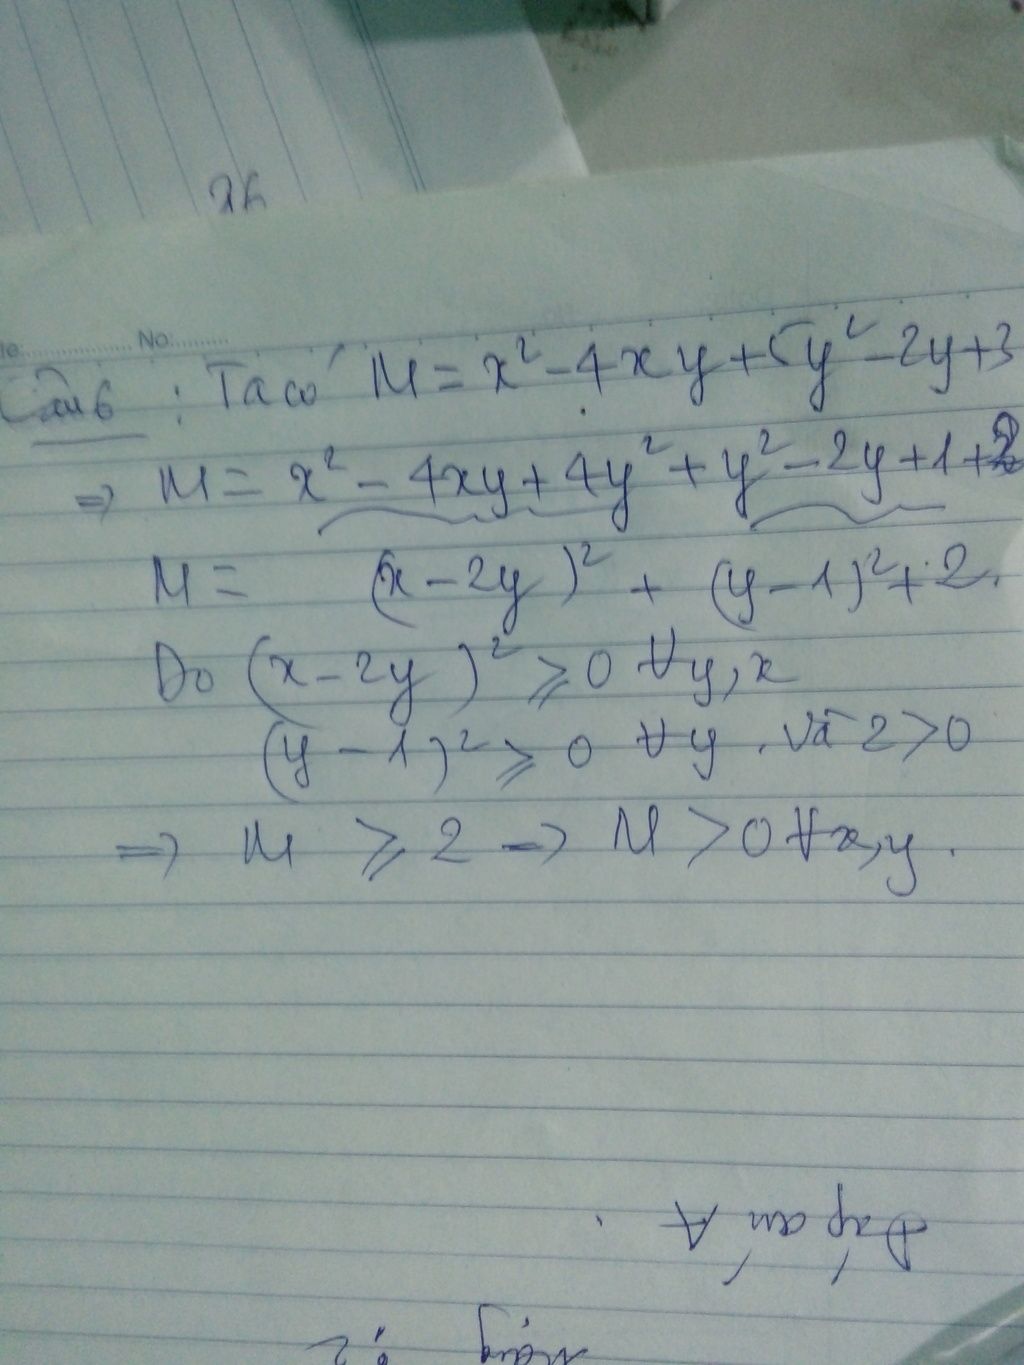 No:
Câu 6 : Ta có M = x² - 4xy + 5y² - 2y + 3
⇒ M = x² - 4xy + 4y² + y² - 2y + 1 + 2
M = (x - 2y)² + (y - 1)² + 2.
Do (x - 2y)² ≥ 0 ∀y, x
(y - 1)² ≥ 0 ∀y . Và 2 > 0
⇒ M ≥ 2 ⇒ M > 0 ∀x, y .
Đáp án A .